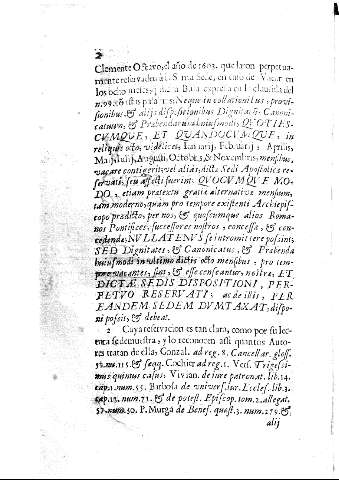 2
Clemente Octavo, el año de 1602. quedaron perpetua-
mente reservadas à la S nta Sede, en caso de vacar en
los ocho meses; dicha Bula expressa en la clausula del
n. 93. estas palabras: Neque in collationibus, provi-
sionibus & alijs dispositionibus Dignitatũ, Canoni-
catuum, & Præbendarum huiusmodi, QUOTIES-
CUMQUE, ET QUANDOCUMQUE, in
reliquis octo, videlicet, Ianuarij, Februarij, Aprilis,
Maij, Iulij, Augusti, Octobris, & Novembris, mensibus,
vacare contigerit; vel aliàs, dictæ Sedi Apostolicæ re-
servati, seu affecti fuerint, QUOCUMQUE MO-
DO, etiam prætextu gratiæ alternativæ mensium,
tam moderno, quam pro tempore existenti Archiepis-
copo prædicto, per nos, & quoscumque alios Roma-
nos Pontifices, successores nostros, concessæ, & con-
cedendæ, NULLATENUS se intromittere possint;
SED Dignitates, & Canonicatus, & Præbenda
huiusmodi in ultimo dictis octo mensibus, pro tem-
pore vacantes, sint, & esse censeantur, nostræ, ET
DICTÆ SEDIS DISPOSITIONI, PER-
PETUO RESERVATI; ac de illis, PER
EANDEM SEDEM DUMTAXAT, dispo-
ni possit, & debeat.
2 Cuya reservacion es tan clara, como por su lec-
tura se demuestra, y lo reconocen assi quantos Auto-
res tratan de ella; Gonzal. ad reg. 8. Cancellar. gloss.
52. nu. 115. & seqq. Cochier ad reg. 1. Vers. Trigessi-
mus quintus casus: Vivian. de iure patronat. lib. 14.
cap. 1. num. 55. Barbosa de univers. iur. Eccles. lib. 3.
cap. 13. num. 71. & de potest. Episcop. tom. 2. allegat.
57. num. 50. P. Murga de Benef. quæst. 3. num. 279. &
alij